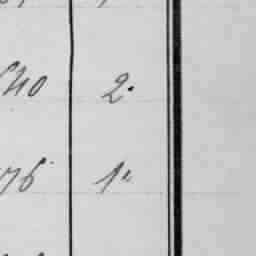 540 2.
76 1"